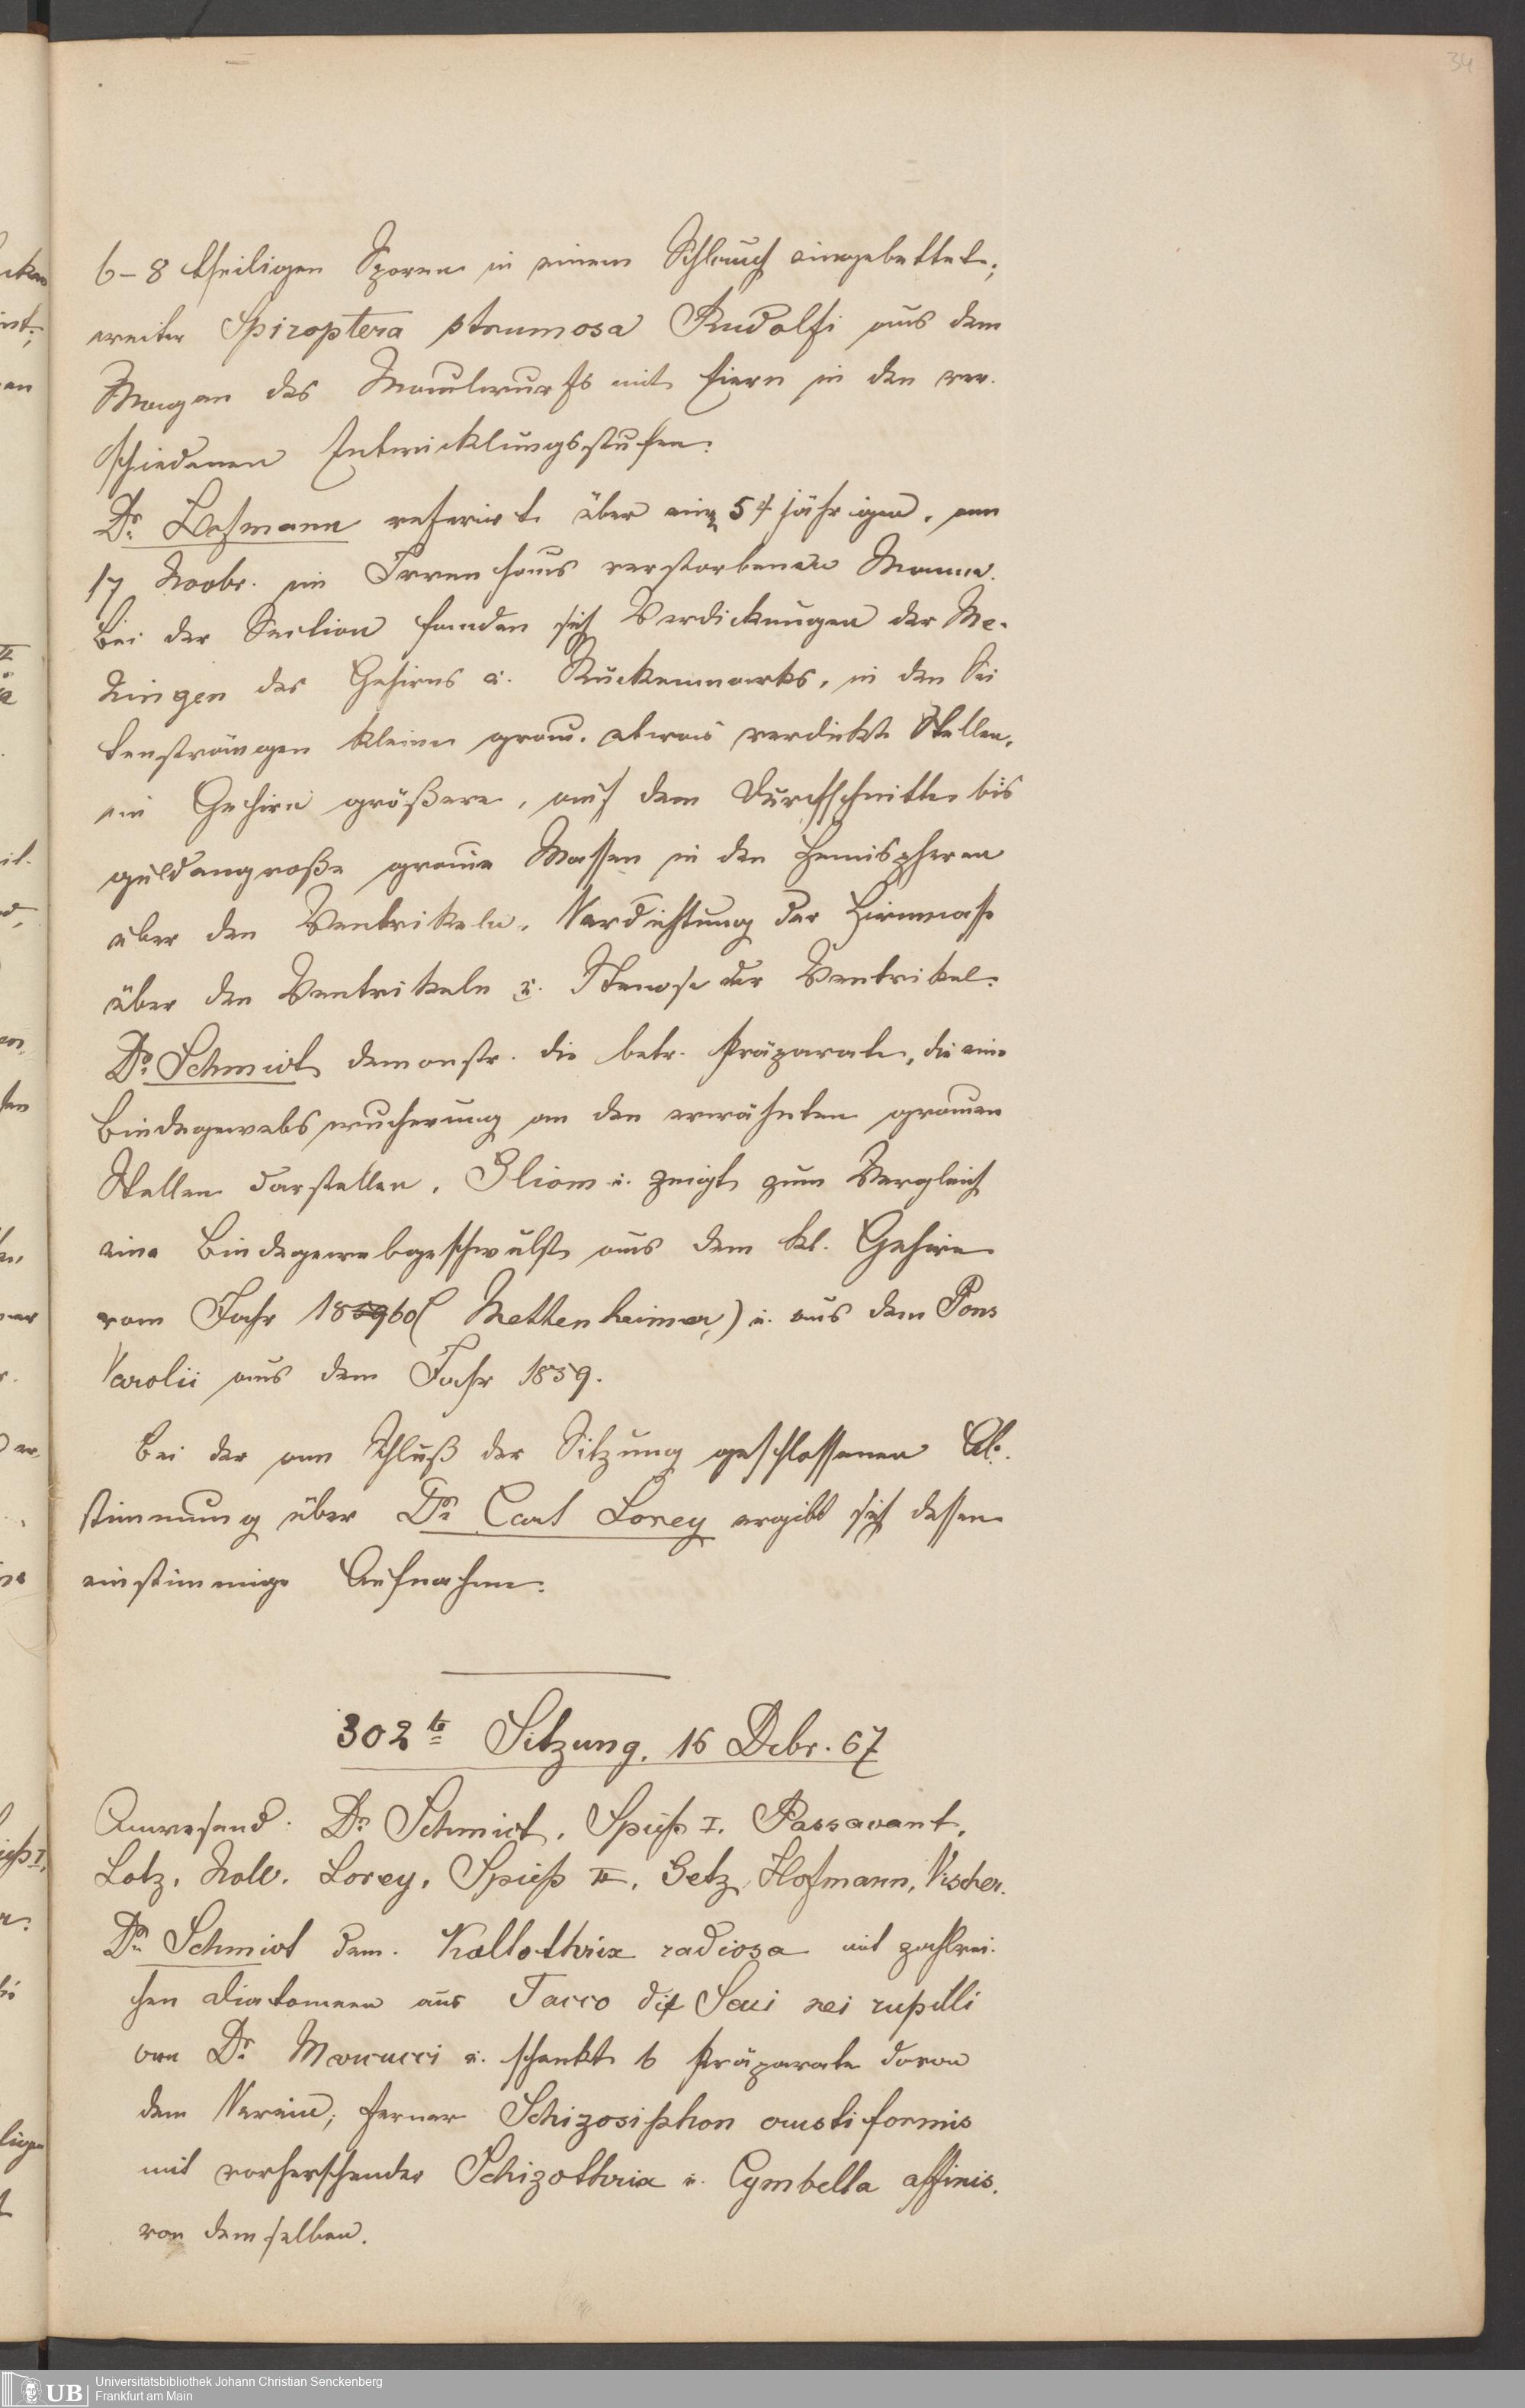 34
6-8 theiligen Sporen in einem Schlauch eingebettet;
weiter Spiroptera strumosa Rudolfi aus dem
Magen des Maulwurfs mit Eiern in den ver-
schiedenen Entwicklungsstufen.
Dr. referirt über einen 54 jährigen, am
17 Novbr. im Irrenhaus verstorbenen Mann.
Bei der Section fanden sich Verdickungen der Me-
ningen des Gehirns u. Rückenmarks, in den Sei
tensträngen kleine grau. etwas verdickte Stellen,
im Gehirn größere, auf dem Durchschnitte bis
guldengroße graue Massen in den Hemispheren
über den Ventrikeln. Verdichtung der Hirnmasse
über den Ventrikeln u. Stenose der Ventrikel.
Dr. Schmidt demonstr. die betr. Präparate, die eine
Bindegewebswucherung an den erwähnten grauen
Stellen darstellen, Gliom u. zeigt zum Vergleich
eine Bindegewebgeschwulst aus dem kl. Gehirn
vom Jahr 1860 (Mettenheimer) u. aus dem Pons
Varolii aus dem Jahr 1859.
Bei der am Schluß der Sitzung geschlossenen Ab-
stimmung über Dr. Carl Lorey ergibt sich dessen
einstimmige Aufnahme.
302te Sitzung. 16 Dcbr. 67
Anwesend: Dr. Schmidt, Spieß I. Passavant,
Lotz, Noll. Lorey, Spieß II, Getz, Hofmann, Vischer.
Dr. Schmidt dem. Kallothrix radiosa mit zahlrei-
chen Diatomeen aus
von Dr. Marcucci u. schenkt 6 Präparate davon
dem Verein; ferner Schizosiphon
mit vorherschender Schizothrix u. Cymbella affinis.
von demselben.
UB Universitätsbibliothek Johann Christian Senckenberg
Frankfurt am Main